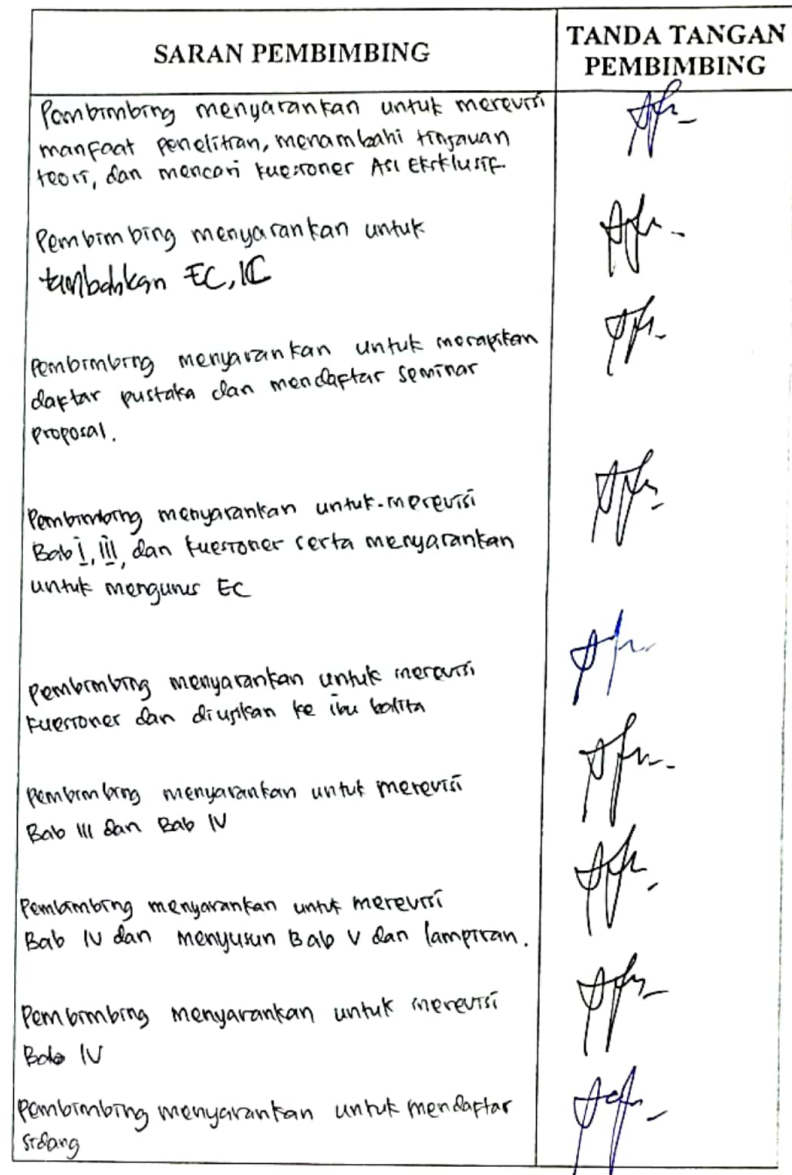 SARAN PEMBIMBING
TANDA TANGAN
PEMBIMBING
Pembimbing menyarankan untuk merevisi
manfaat penelitian, menambahi tinjauan
teori, dan mencari kuesioner Asi Eksklusif
Pembimbing menyarankan untuk
tambahkan EC, IC
Pembimbing menyarankan untuk merapikan
daftar pustaka dan mendaftar seminar
proposal.
Pembimbing menyarankan untuk merevisi
Bab I, III, dan kuesioner serta menyarankan
untuk mengurus EC
Pembimbing menyarankan untuk merevisi
kuesioner dan diujikan ke ibu balita
Pembimbing menyarankan untuk merevisi
Bab III dan Bab IV
Pembimbing menyarankan untuk merevisi
Bab IV dan menyusun Bab V dan lampiran.
Pembimbing menyarankan untuk merevisi
Bab IV
Pembimbing menyarankan untuk mendaftar
sidang